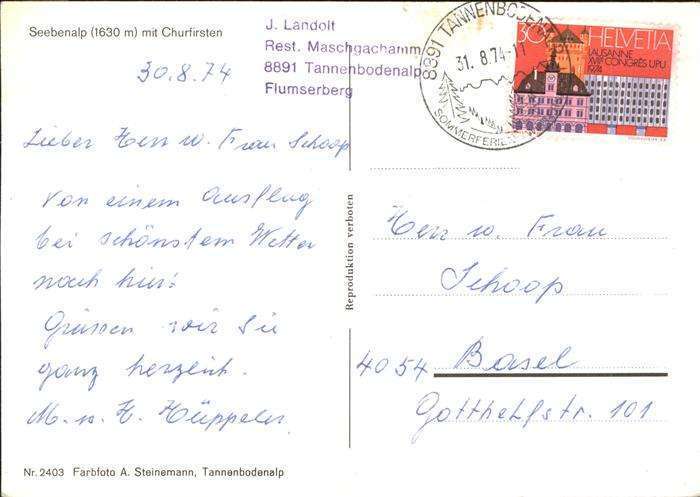 Seebenalp (1630 m) mit Churfirsten
J. Landolt
Rest. Maschgachamm
8891 Tannenbodenalp
Flumserberg
8891 TANNENBODENALP
31.8.74-11
SOMMERFERIEN
30
HELVETIA
LAUSANNE
XVIIe CONGRÈS UPU
1974
30.8.74
Lieber Herr u. Frau Schoop
Von einem Ausflug
bei schönstem Wetter
nach hier
Grüssen wir Sie
ganz herzlich.
M. u. H. Hüppeler
Reproduktion verboten
Herr u. Frau
Schoop
4054 Basel
Gotthelfstr. 101
Nr. 2403 Farbfoto A. Steinemann, Tannenbodenalp